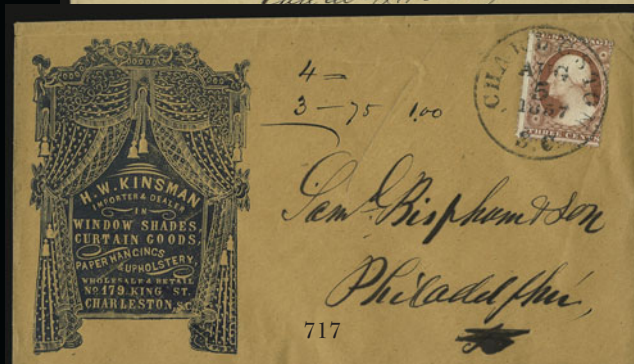 H. W. KINSMAN
IMPORTER & DEALER
IN
WINDOW SHADES,
CURTAIN GOODS,
PAPER HANGINGS
& UPHOLSTERY,
WHOLESALE & RETAIL
No 179 KING ST.
CHARLESTON, S.C.
4 =
3 — 75 1.00
CHARLESTON
AUG
5
1857
S.C.
THREE CENTS
Saml. Bispham & Son
Philadelphi,
717